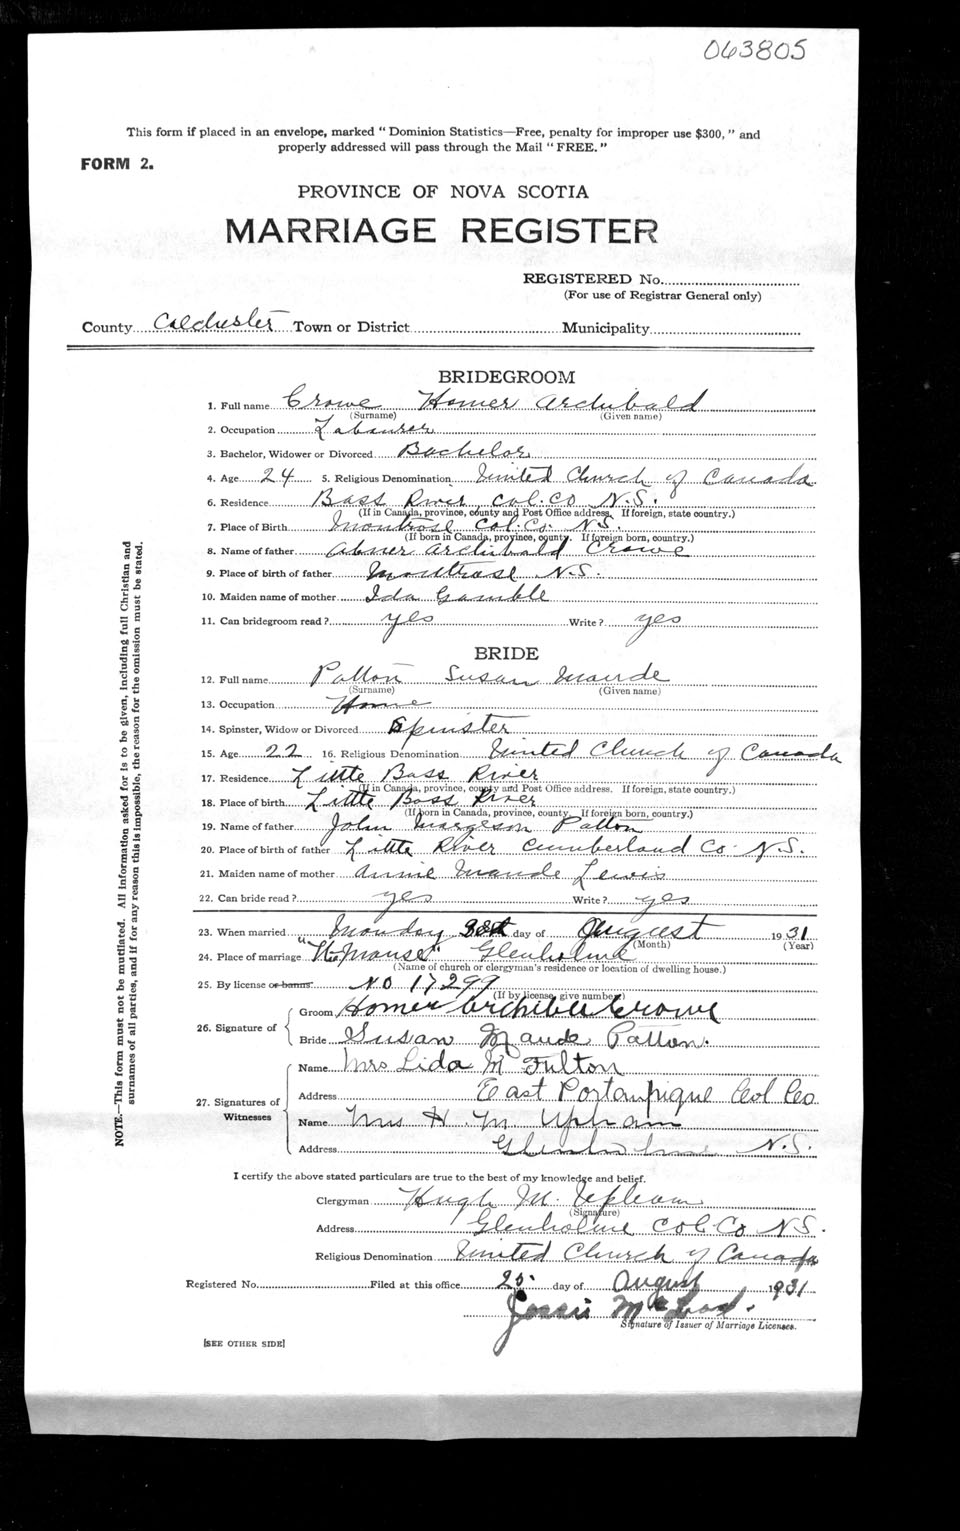 063805
This form if placed in an envelope, marked "Dominion Statistics—Free, penalty for improper use $300," and
properly addressed will pass through the Mail "FREE."
FORM 2.
PROVINCE OF NOVA SCOTIA
MARRIAGE REGISTER
REGISTERED No.
(For use of Registrar General only)
County Colchester Town or District Municipality
BRIDEGROOM
1. Full name Crowe Homer Archibald
(Surname) (Given name)
2. Occupation Labourer
3. Bachelor, Widower or Divorced Bachelor
4. Age 24 5. Religious Denomination United Church of Canada
6. Residence Bass River Col. Co N.S.
(If in Canada, province, county and Post Office address. If foreign, state country.)
7. Place of Birth Montrose Col. Co. N.S.
(If born in Canada, province, county. If foreign born, country.)
8. Name of father Abner Archibald Crowe
9. Place of birth of father Montrose N.S.
10. Maiden name of mother Ida Gamble
11. Can bridegroom read? yes Write? yes
BRIDE
12. Full name Patton Susan Maude
(Surname) (Given name)
13. Occupation Home
14. Spinster, Widow or Divorced Spinster
15. Age 22 16. Religious Denomination United Church of Canada
17. Residence Little Bass River
(If in Canada, province, county and Post Office address. If foreign, state country.)
18. Place of birth Little Bass River
(If born in Canada, province, county. If foreign born, country.)
19. Name of father John Margeson Patton
20. Place of birth of father Little River Cumberland Co. N.S.
21. Maiden name of mother Annie Maude Lewis
22. Can bride read? yes Write? yes
23. When married Monday day of August 1931
(Month) (Year)
24. Place of marriage "The Manse" Glenholme
(Name of church or clergyman's residence or location of dwelling house.)
25. By license or banns No 17299
(If by license, give number)
26. Signature of
Groom Homer Archibald Crowe
Bride Susan Maude Patton.
27. Signatures of Witnesses
Name Mrs Lida M Fulton
Address East Portaupique Col Co.
Name Mrs H. M Upham
Address Glenholme N.S.
I certify the above stated particulars are true to the best of my knowledge and belief.
Clergyman Hugh M. Upham
(Signature)
Address Glenholme Col. Co N.S.
Religious Denomination United Church of Canada
Registered No. Filed at this office 25. day of August 1931
Signature of Issuer of Marriage Licenses.
[SEE OTHER SIDE]
NOTE.—This form must not be mutilated. All information asked for is to be given, including full Christian and
surnames of all parties, and if for any reason this is impossible, the reason for the omission must be stated.